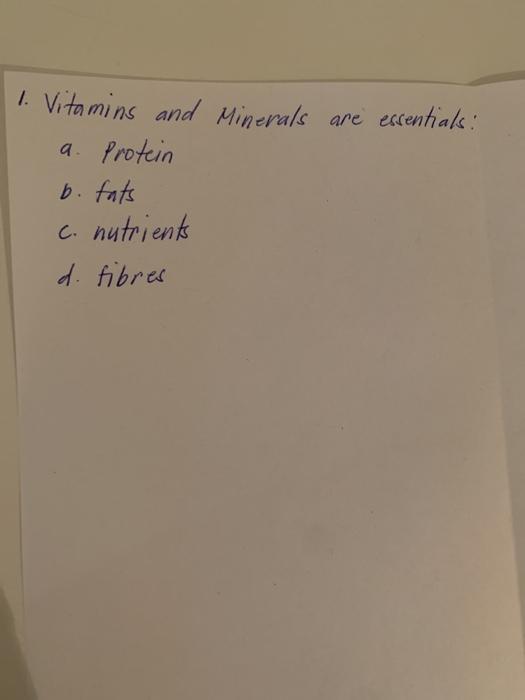 1. Vitamins and Minerals are essentials:
a. Protein
b. fats
c. nutrients
d. fibres